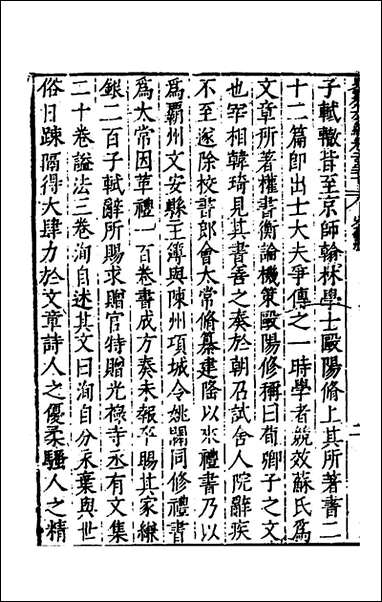 子軾轍皆至京師翰林學士毆陽脩上其所著書二
十二篇即出士大夫爭傳之一時學者競效蘇氏爲
文章所著權書衡論機策毆陽修稱曰荀卿子之文
也宰相韓琦見其書善之奏於朝召試舍人院辭疾
不至遂除校書郎會太常脩纂建隆以來禮書乃以
爲霸州文安縣主簿與陳州項城令姚闢同修禮書
爲太常因革禮一百卷書成方奏未報卒賜其家縑
銀二百子軾辭所賜求贈官特贈光祿寺丞有文集
二十卷謚法三卷洵自述其文曰洵自分永棄與世
俗日踈闊得大肆力於文章詩人之優柔騷人之精